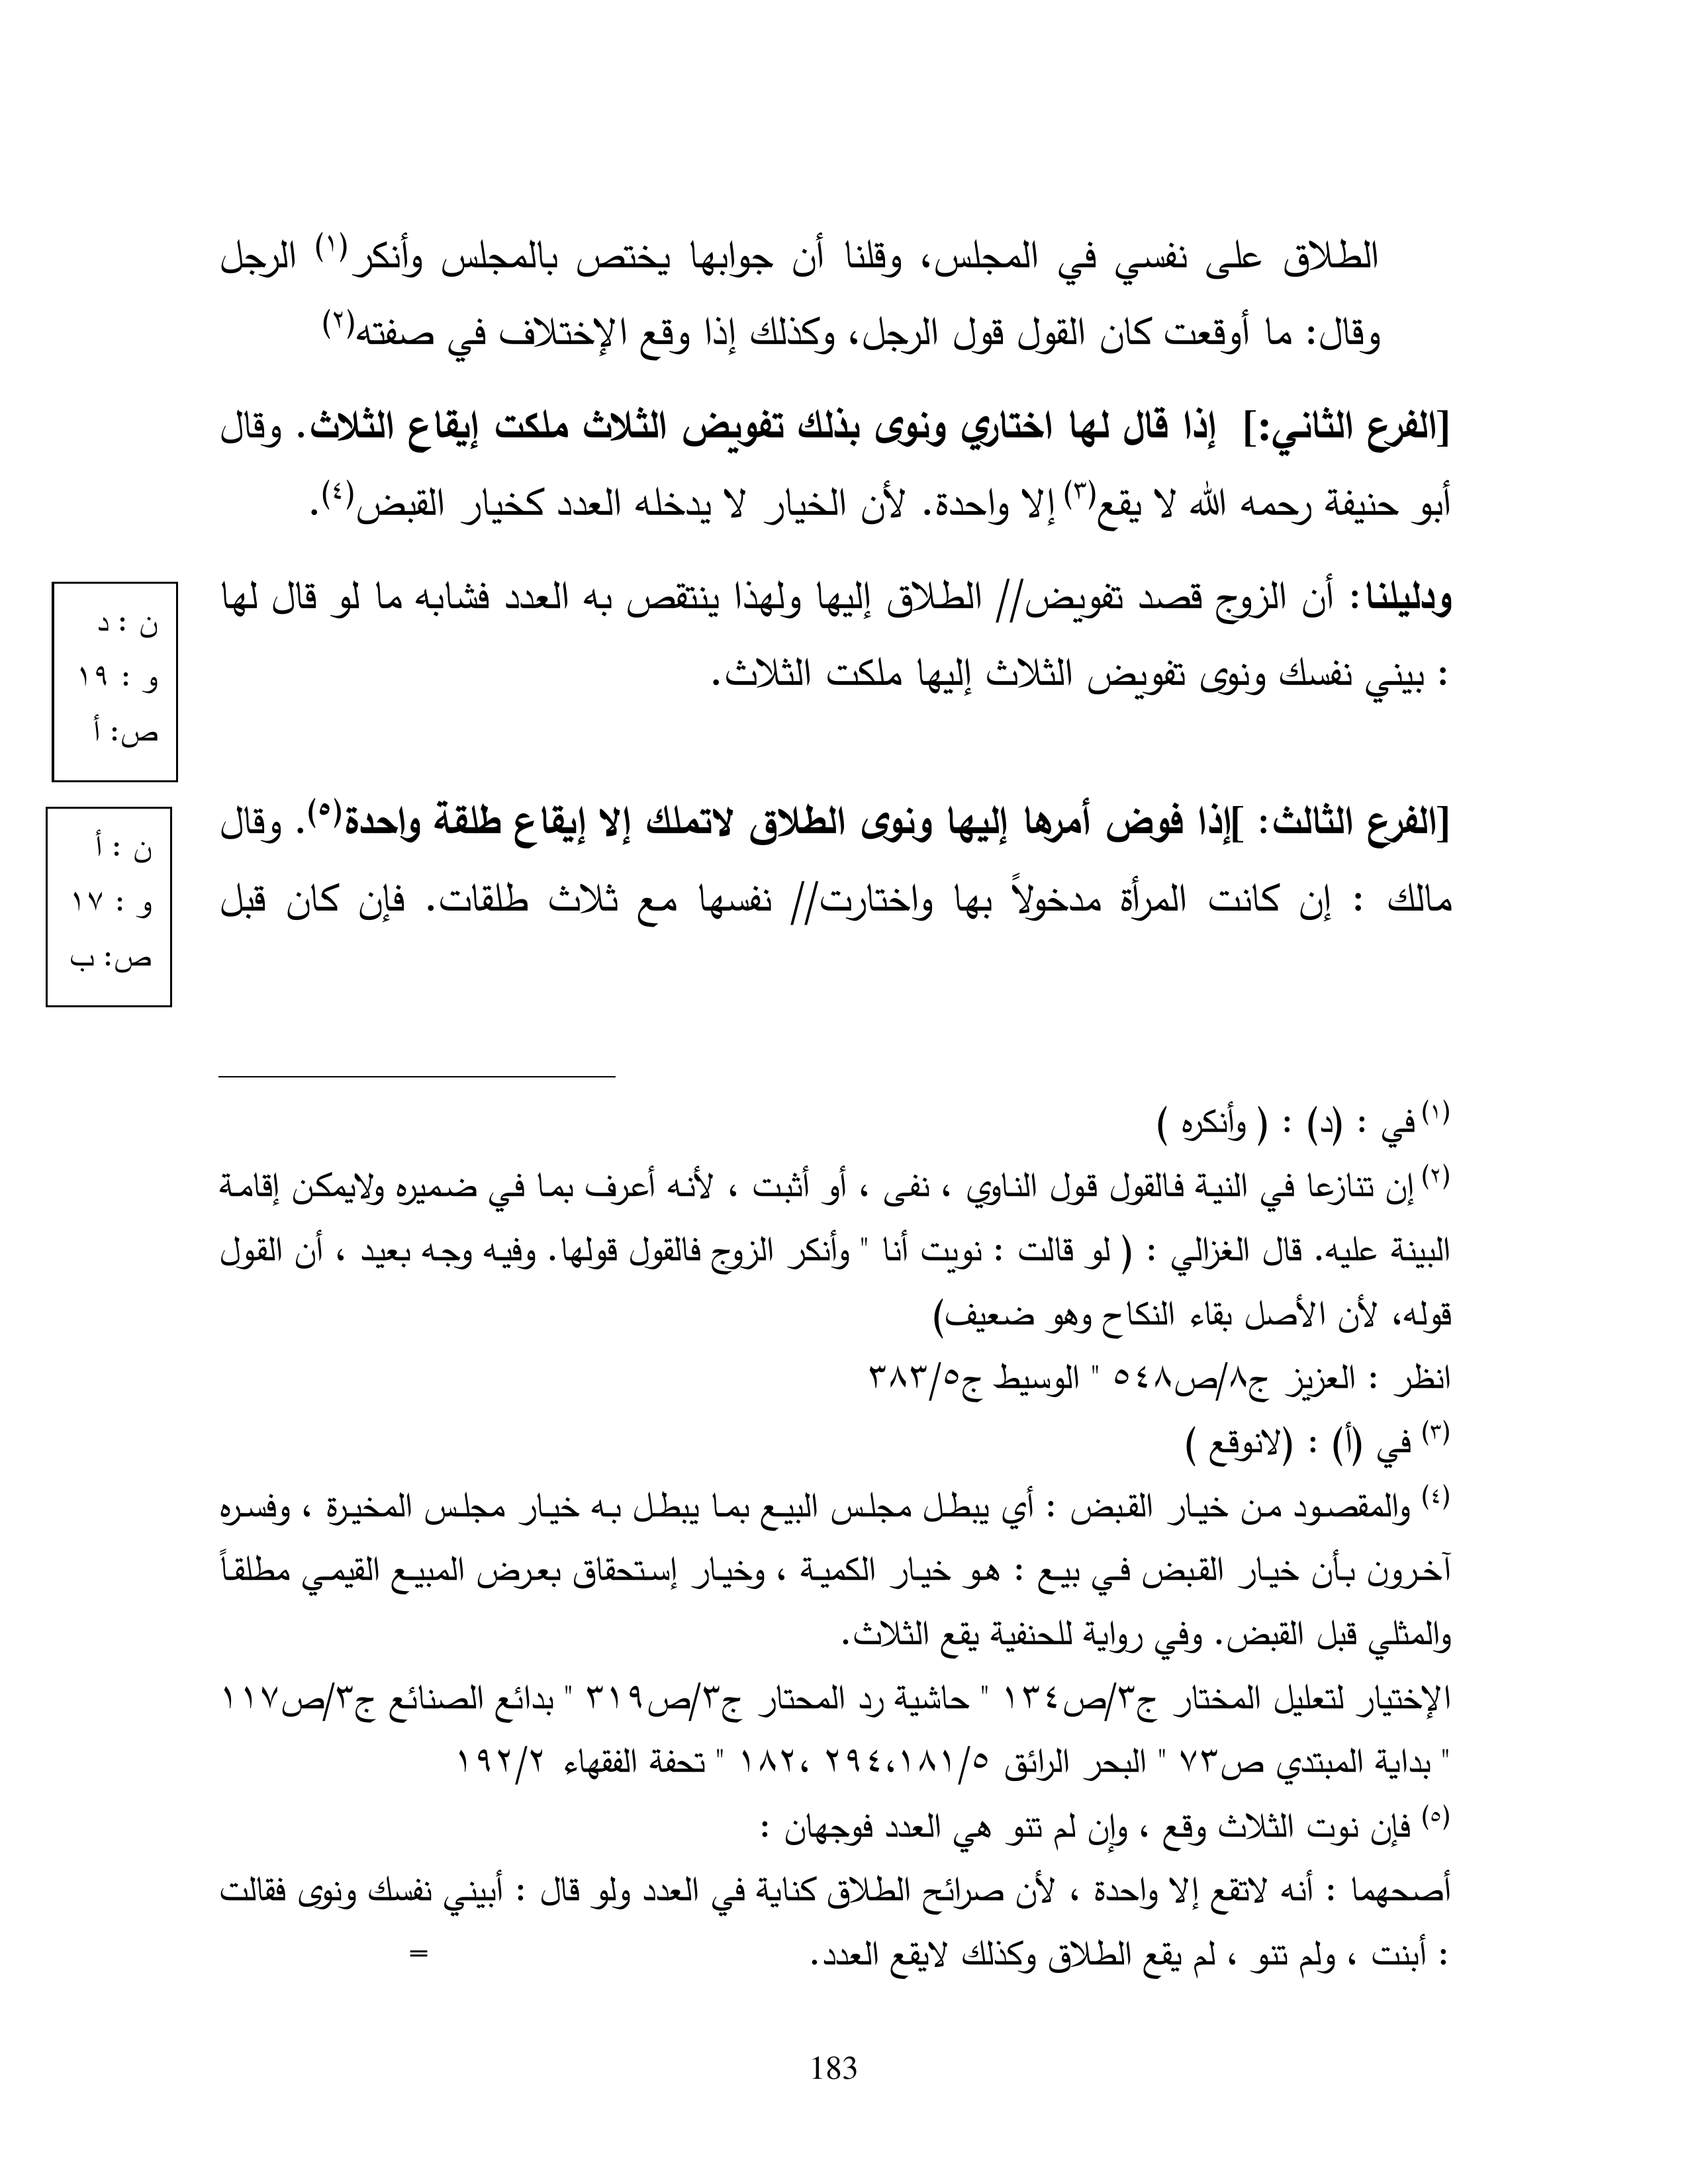 الطلاق على نفسي في المجلس، وقلنا أن جوابها يختص بالمجلس وأنكر(١) الرجل
وقال: ما أوقعت كان القول قول الرجل، وكذلك إذا وقع الإختلاف في صفته(٢)
[الفرع الثاني:] إذا قال لها اختاري ونوى بذلك تفويض الثلاث ملكت إيقاع الثلاث. وقال
أبو حنيفة رحمه الله لا يقع(٣) إلا واحدة. لأن الخيار لا يدخله العدد كخيار القبض(٤).
ودليلنا: أن الزوج قصد تفويض// الطلاق إليها ولهذا ينتقص به العدد فشابه ما لو قال لها
: بيني نفسك ونوى تفويض الثلاث إليها ملكت الثلاث.
ن : د
و : ١٩
ص: أ
[الفرع الثالث: ]إذا فوض أمرها إليها ونوى الطلاق لاتملك إلا إيقاع طلقة واحدة(٥). وقال
مالك : إن كانت المرأة مدخولاً بها واختارت// نفسها مع ثلاث طلقات. فإن كان قبل
ن : أ
و : ١٧
ص: ب
(١) في : (د) : ( وأنكره )
(٢) إن تنازعا في النية فالقول قول الناوي ، نفى ، أو أثبت ، لأنه أعرف بما في ضميره ولايمكن إقامة
البينة عليه. قال الغزالي : ( لو قالت : نويت أنا " وأنكر الزوج فالقول قولها. وفيه وجه بعيد ، أن القول
قوله، لأن الأصل بقاء النكاح وهو ضعيف)
انظر : العزيز ج٨/ص٥٤٨ " الوسيط ج٣٨٣/٥
(٣) في (أ) : (لانوقع )
(٤) والمقصود من خيار القبض : أي يبطل مجلس البيع بما يبطل به خيار مجلس المخيرة ، وفسره
آخرون بأن خيار القبض في بيع : هو خيار الكمية ، وخيار إستحقاق بعرض المبيع القيمي مطلقاً
والمثلي قبل القبض. وفي رواية للحنفية يقع الثلاث.
الإختيار لتعليل المختار ج٣/ص١٣٤ " حاشية رد المحتار ج٣/ص٣١٩ " بدائع الصنائع ج٣/ص١١٧
" بداية المبتدي ص٧٣ " البحر الرائق ٢٩٤،١٨١/٥ ،١٨٢ " تحفة الفقهاء ١٩٢/٢
(٥) فإن نوت الثلاث وقع ، وإن لم تنو هي العدد فوجهان :
أصحهما : أنه لاتقع إلا واحدة ، لأن صرائح الطلاق كناية في العدد ولو قال : أبيني نفسك ونوى فقالت
: أبنت ، ولم تنو ، لم يقع الطلاق وكذلك لايقع العدد. =
183